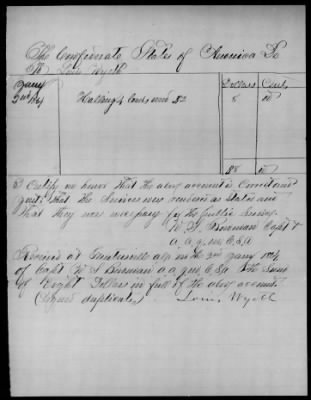 The Confederate States of America Dr
To Louis Wyeth
Dollars Cents
Jany
2nd 1864 Hauling 4 loads wood $2 8 00
$8 00
I Certify on honor that the above account is Correct and
just; that the services were rendered as stated and
that they were necessary for the public service.
W. J. Bowman Capt &
a. a. q. m. C. S. A
Received at Guntersville ala on the 2nd Jany 1864
of Capt W J Bowman a a q m C. S. a the Sum
of Eight Dollars in full of the above account.
(Signed duplicates) Louis Wyeth